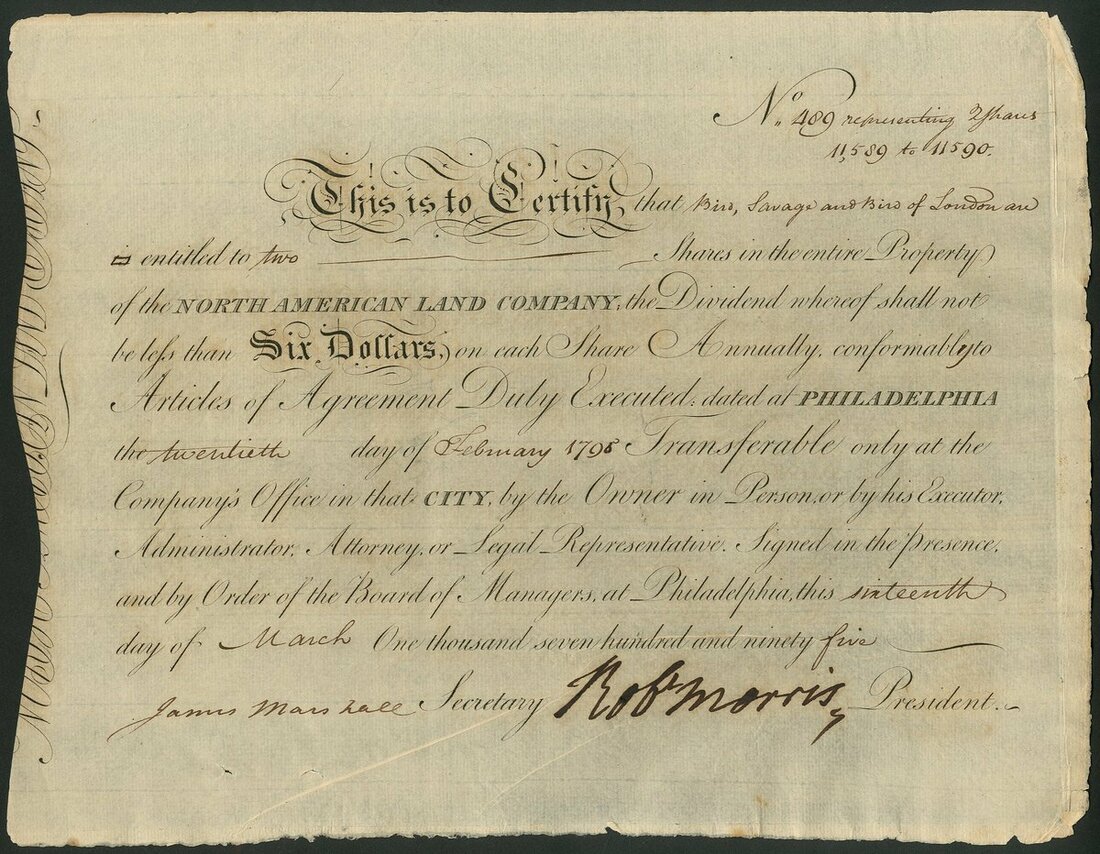 No. 489 representing 2 Shares
11,589 to 11590.
This is to Certify, that Bird, Savage and Bird of London are
is entitled to two Shares in the entire Property
of the NORTH AMERICAN LAND COMPANY, the Dividend whereof shall not
be less than Six Dollars, on each Share Annually, conformably to
Articles of Agreement Duly Executed; dated at PHILADELPHIA
the twentieth day of February 1795 Transferable only at the
Company's Office in that CITY, by the Owner in Person, or by his Executor,
Administrator, Attorney, or Legal Representative. Signed in the presence,
and by Order of the Board of Managers, at Philadelphia, this sixteenth
day of March One thousand seven hundred and ninety five
James Marshall Secretary Robt Morris, President.